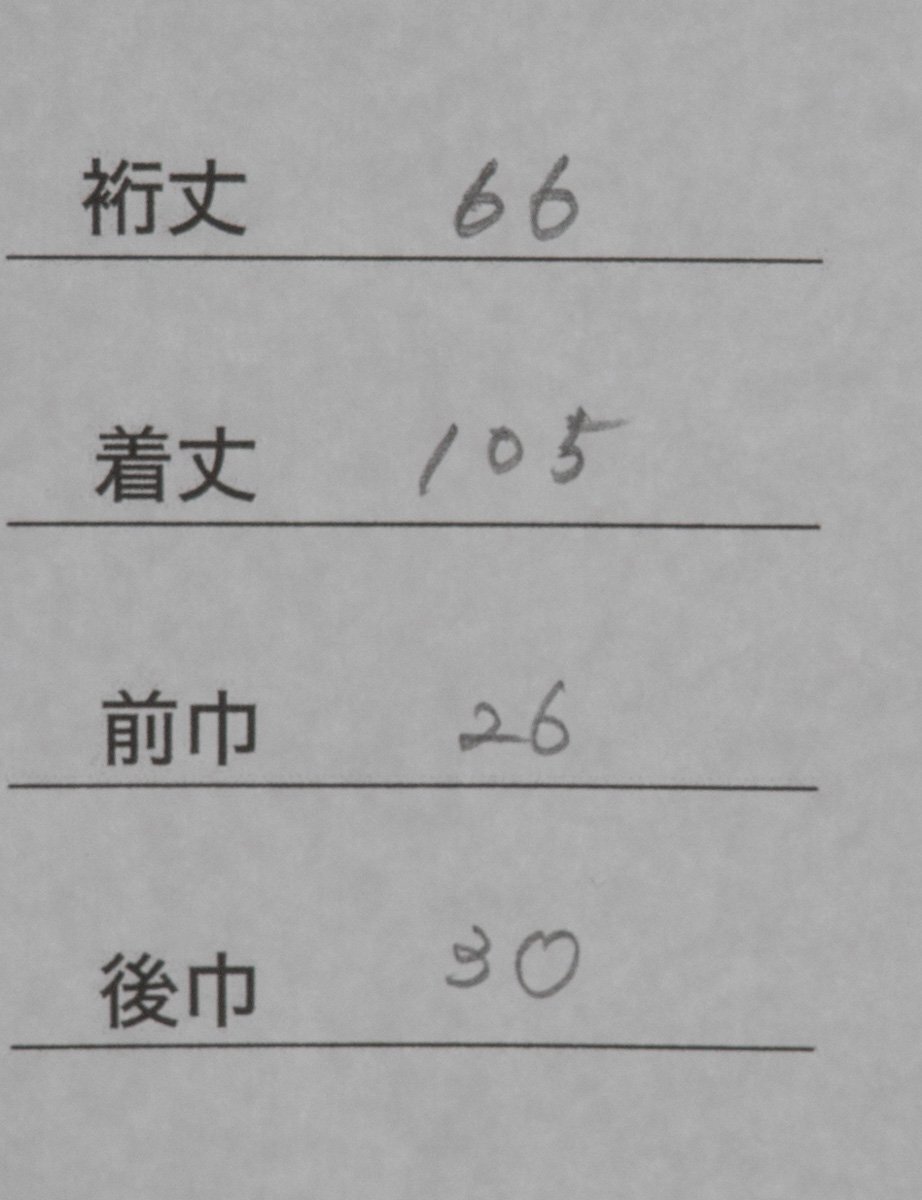 裄丈 66
着丈 105
前巾 26
後巾 30